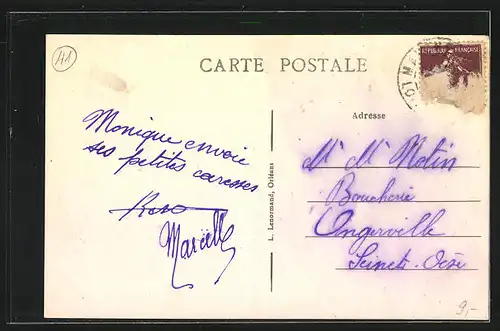 A1
CARTE POSTALE
RÉPUBLIQUE FRANÇAISE
Adresse
Monique envoie
ses petites caresses
Marcelle
L. Lenormand, Orléans
Mr Mr Motin
Boucherie
Angerville
Seine et Oise
9,-